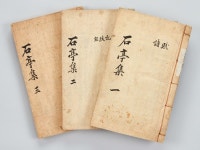 石亭集 一
詩
石亭集 二
石亭集 三